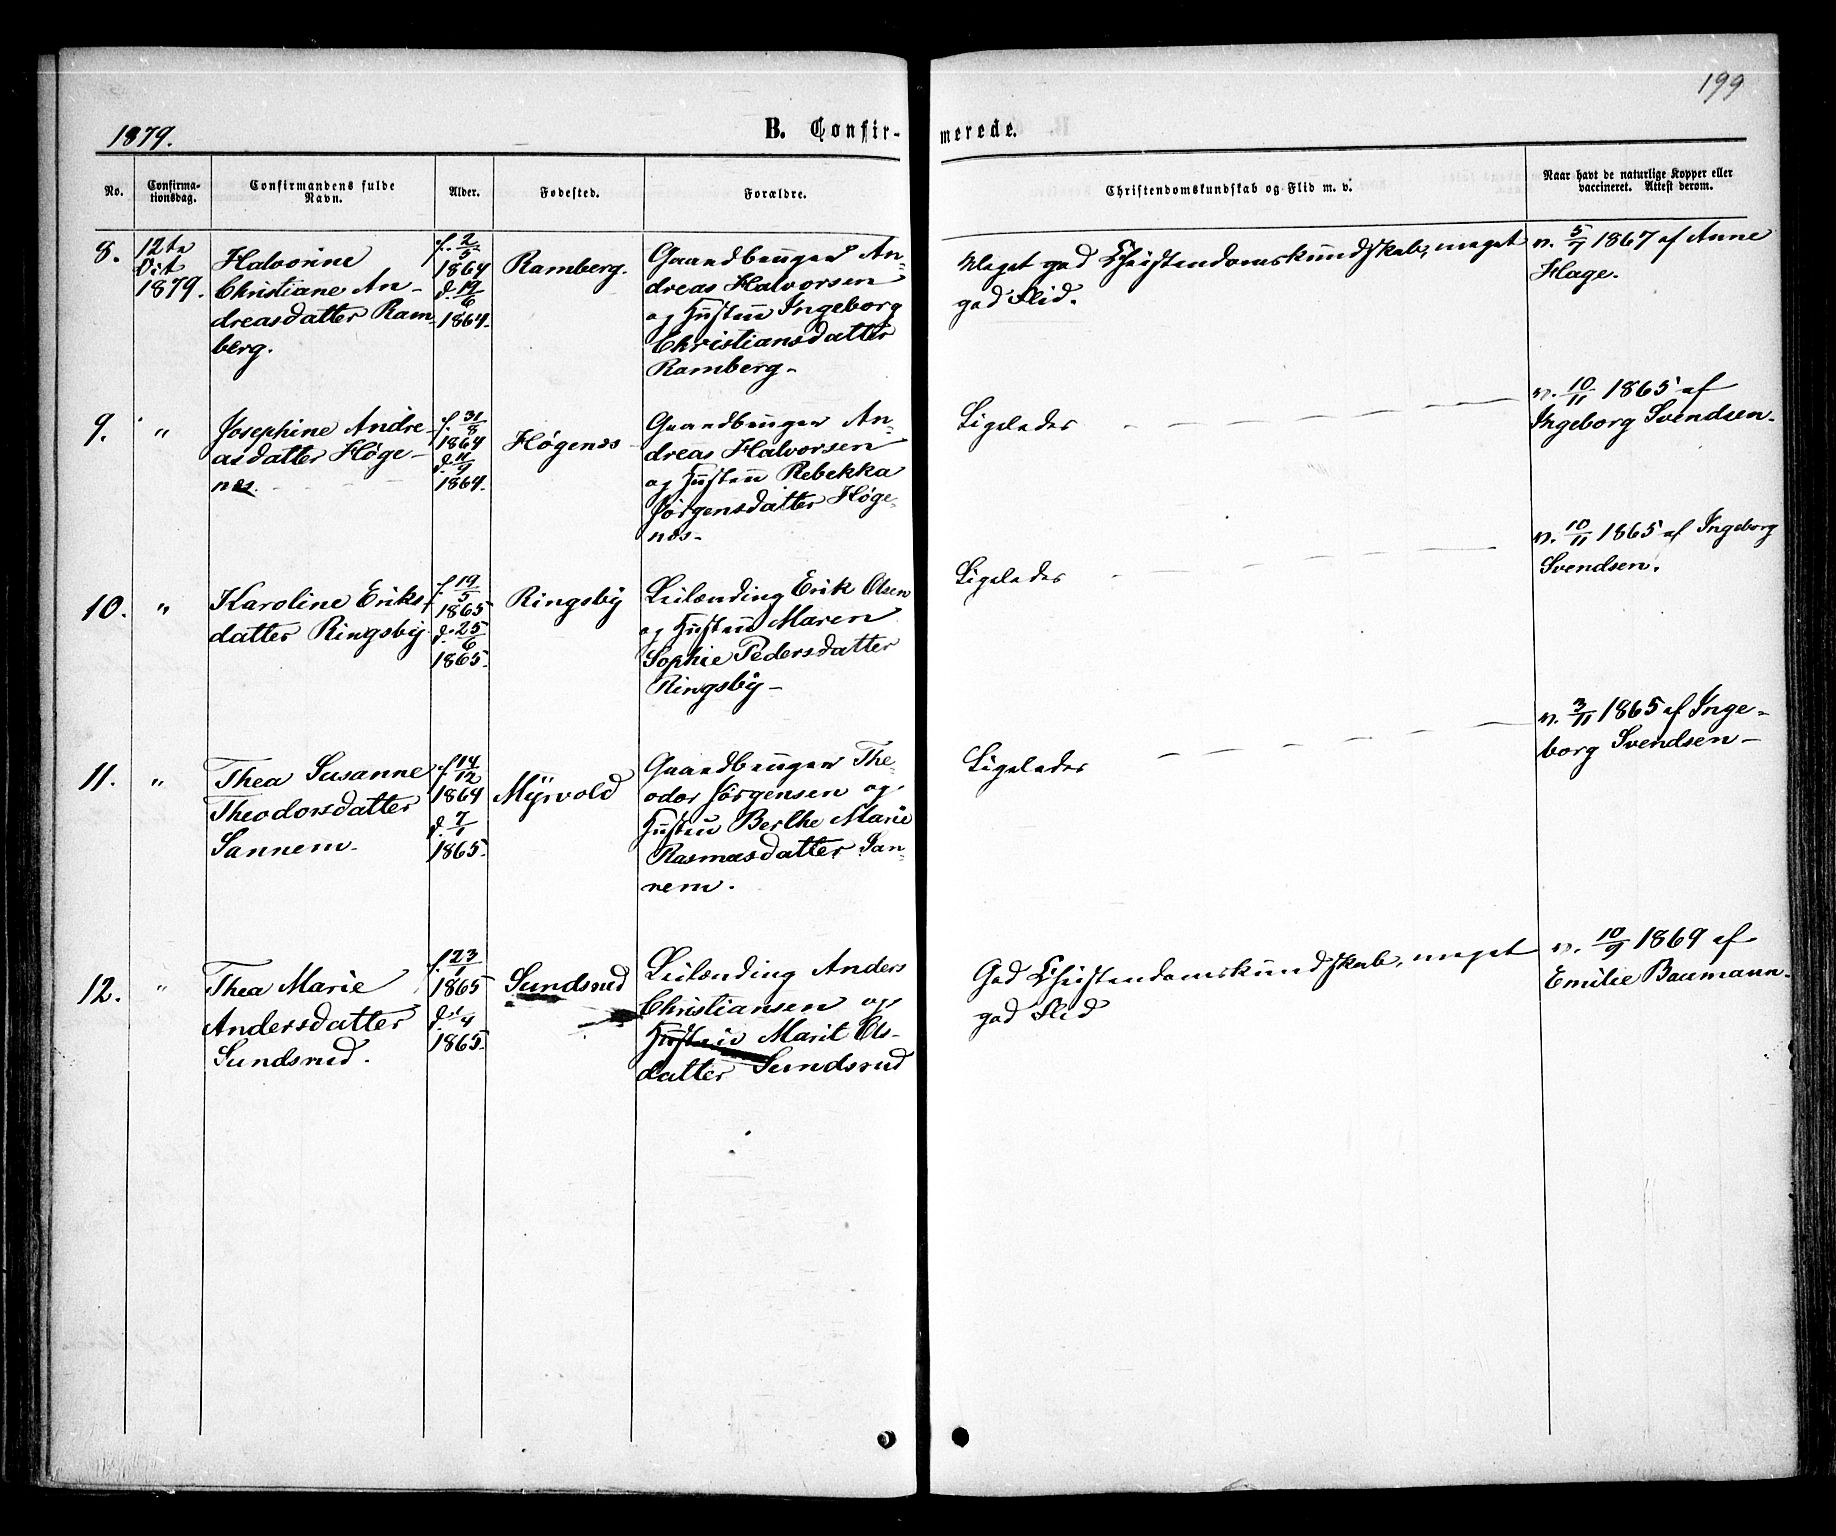 199
1879.
B. Confir-
merede.
No.
Confirma-
tionsdag.
Confirmandens fulde
Navn.
Alder.
Fødested.
Forældre.
Christendomskundskab og Flid m. v.
Naar havt de naturlige Kopper eller
vaccineret. Attest derom.
8.
12te
Oct
1879.
Halvorine
Christiane An-
dreasdatter Ram-
berg.
f. 2/5
1864
d. 19/6
1864.
Ramberg.
Gaardbruger An-
dreas Halvorsen
og Hustru Ingeborg
Christiansdatter
Ramberg-
Meget god Christendomskundskab, meget
god Flid.
v. 5/7 1867 af Anne
Hage.
9.
"
Josephine Andre-
asdatter Høge-
næs.
f. 31/8
1864
d. 11/9
1864.
Høgenæs
Gaardbruger An-
dreas Halvorsen
og Hustru Rebekka
Jørgensdatter Høge-
næs-
Ligeledes
v. 10/11 1865 af
Ingeborg Svendsen.
10.
"
Karoline Eriks-
datter Ringsby
f. 19/5
1865
d. 25/6
1865.
Ringsby
Leilænding Erik Olsen
og Hustru Maren
Sophie Pedersdatter
Ringsby-
Ligeledes
v. 10/11 1865 af Ingeborg
Svendsen.
11.
"
Thea Susanne
Theodorsdatter
Sannem.
f. 14/12
1864
d. 7/1
1865.
Myrvold
Gaardbruger The-
odor Jørgensen og
Hustru Berthe Marie
Rasmusdatter San-
nem.
Ligeledes
v. 3/11 1865 af Inge-
borg Svendsen-
12.
"
Thea Marie
Andersdatter
Sundsrud.
f. 23/1
1865
d. 1/4
1865.
Sundsrud
Leilænding Anders
Christiansen og
Hustru Marit Ols-
datter Sundsrud
God Christendomskundskab, meget
god Flid
v. 10/9 1869 af
Emilie Baumann.